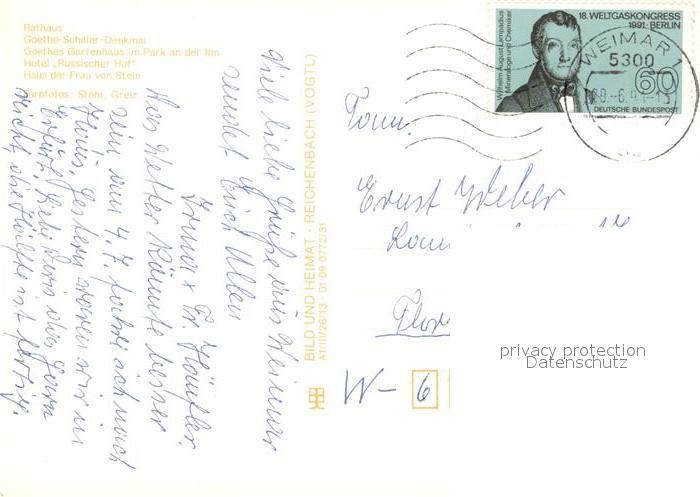 Rathaus
Goethe-Schiller-Denkmal
Goethes Gartenhaus im Park an der Ilm
Hotel „Russischer Hof"
Haus der Frau von Stein
Farbfotos: Stöhr, Greiz
Viele liebe Grüße aus Weimar
sendet Euch Allen
Irma + Fr. Häußler.
Das Wetter könnte besser
sein, am 4.7. fahre ich nach
Haus. Gestern waren wir in
Erfurt.
nicht, die Hälfte ist fertig.
BILD UND HEIMAT · REICHENBACH (VOGTL)
A1/III/26/13 01 09 0772/31
Wilhelm August Lampadius
Mineraloge und Chemiker
18. WELTGASKONGRESS
1991 · BERLIN
60
DEUTSCHE BUNDESPOST
WEIMAR 1
5300
Fam.
Ernst Weber
W - 6
privacy protection
Datenschutz